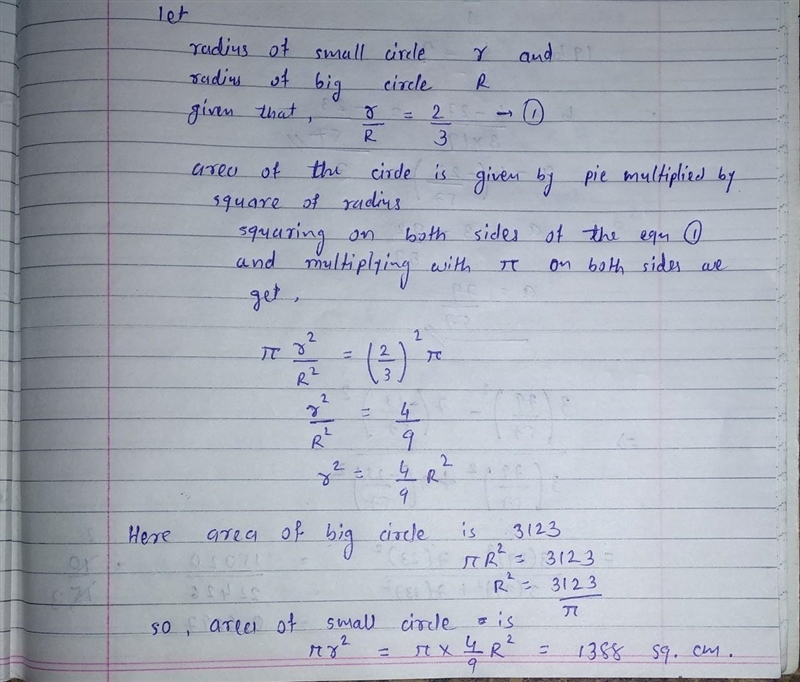 let
radius of small circle r and
radius of big circle R
given that, r/R = 2/3 → ①
area of the circle is given by pie multiplied by
square of radius
squaring on both sides of the equn ①
and multiplying with π on both sides we
get,
π r²/R² = (2/3)² π
r²/R² = 4/9
r² = 4/9 R²
Here area of big circle is 3123
πR² = 3123 =
R² = 3123/π
so, area of small circle is
πr² = π × 4/9 R² = 1388 sq. cm.